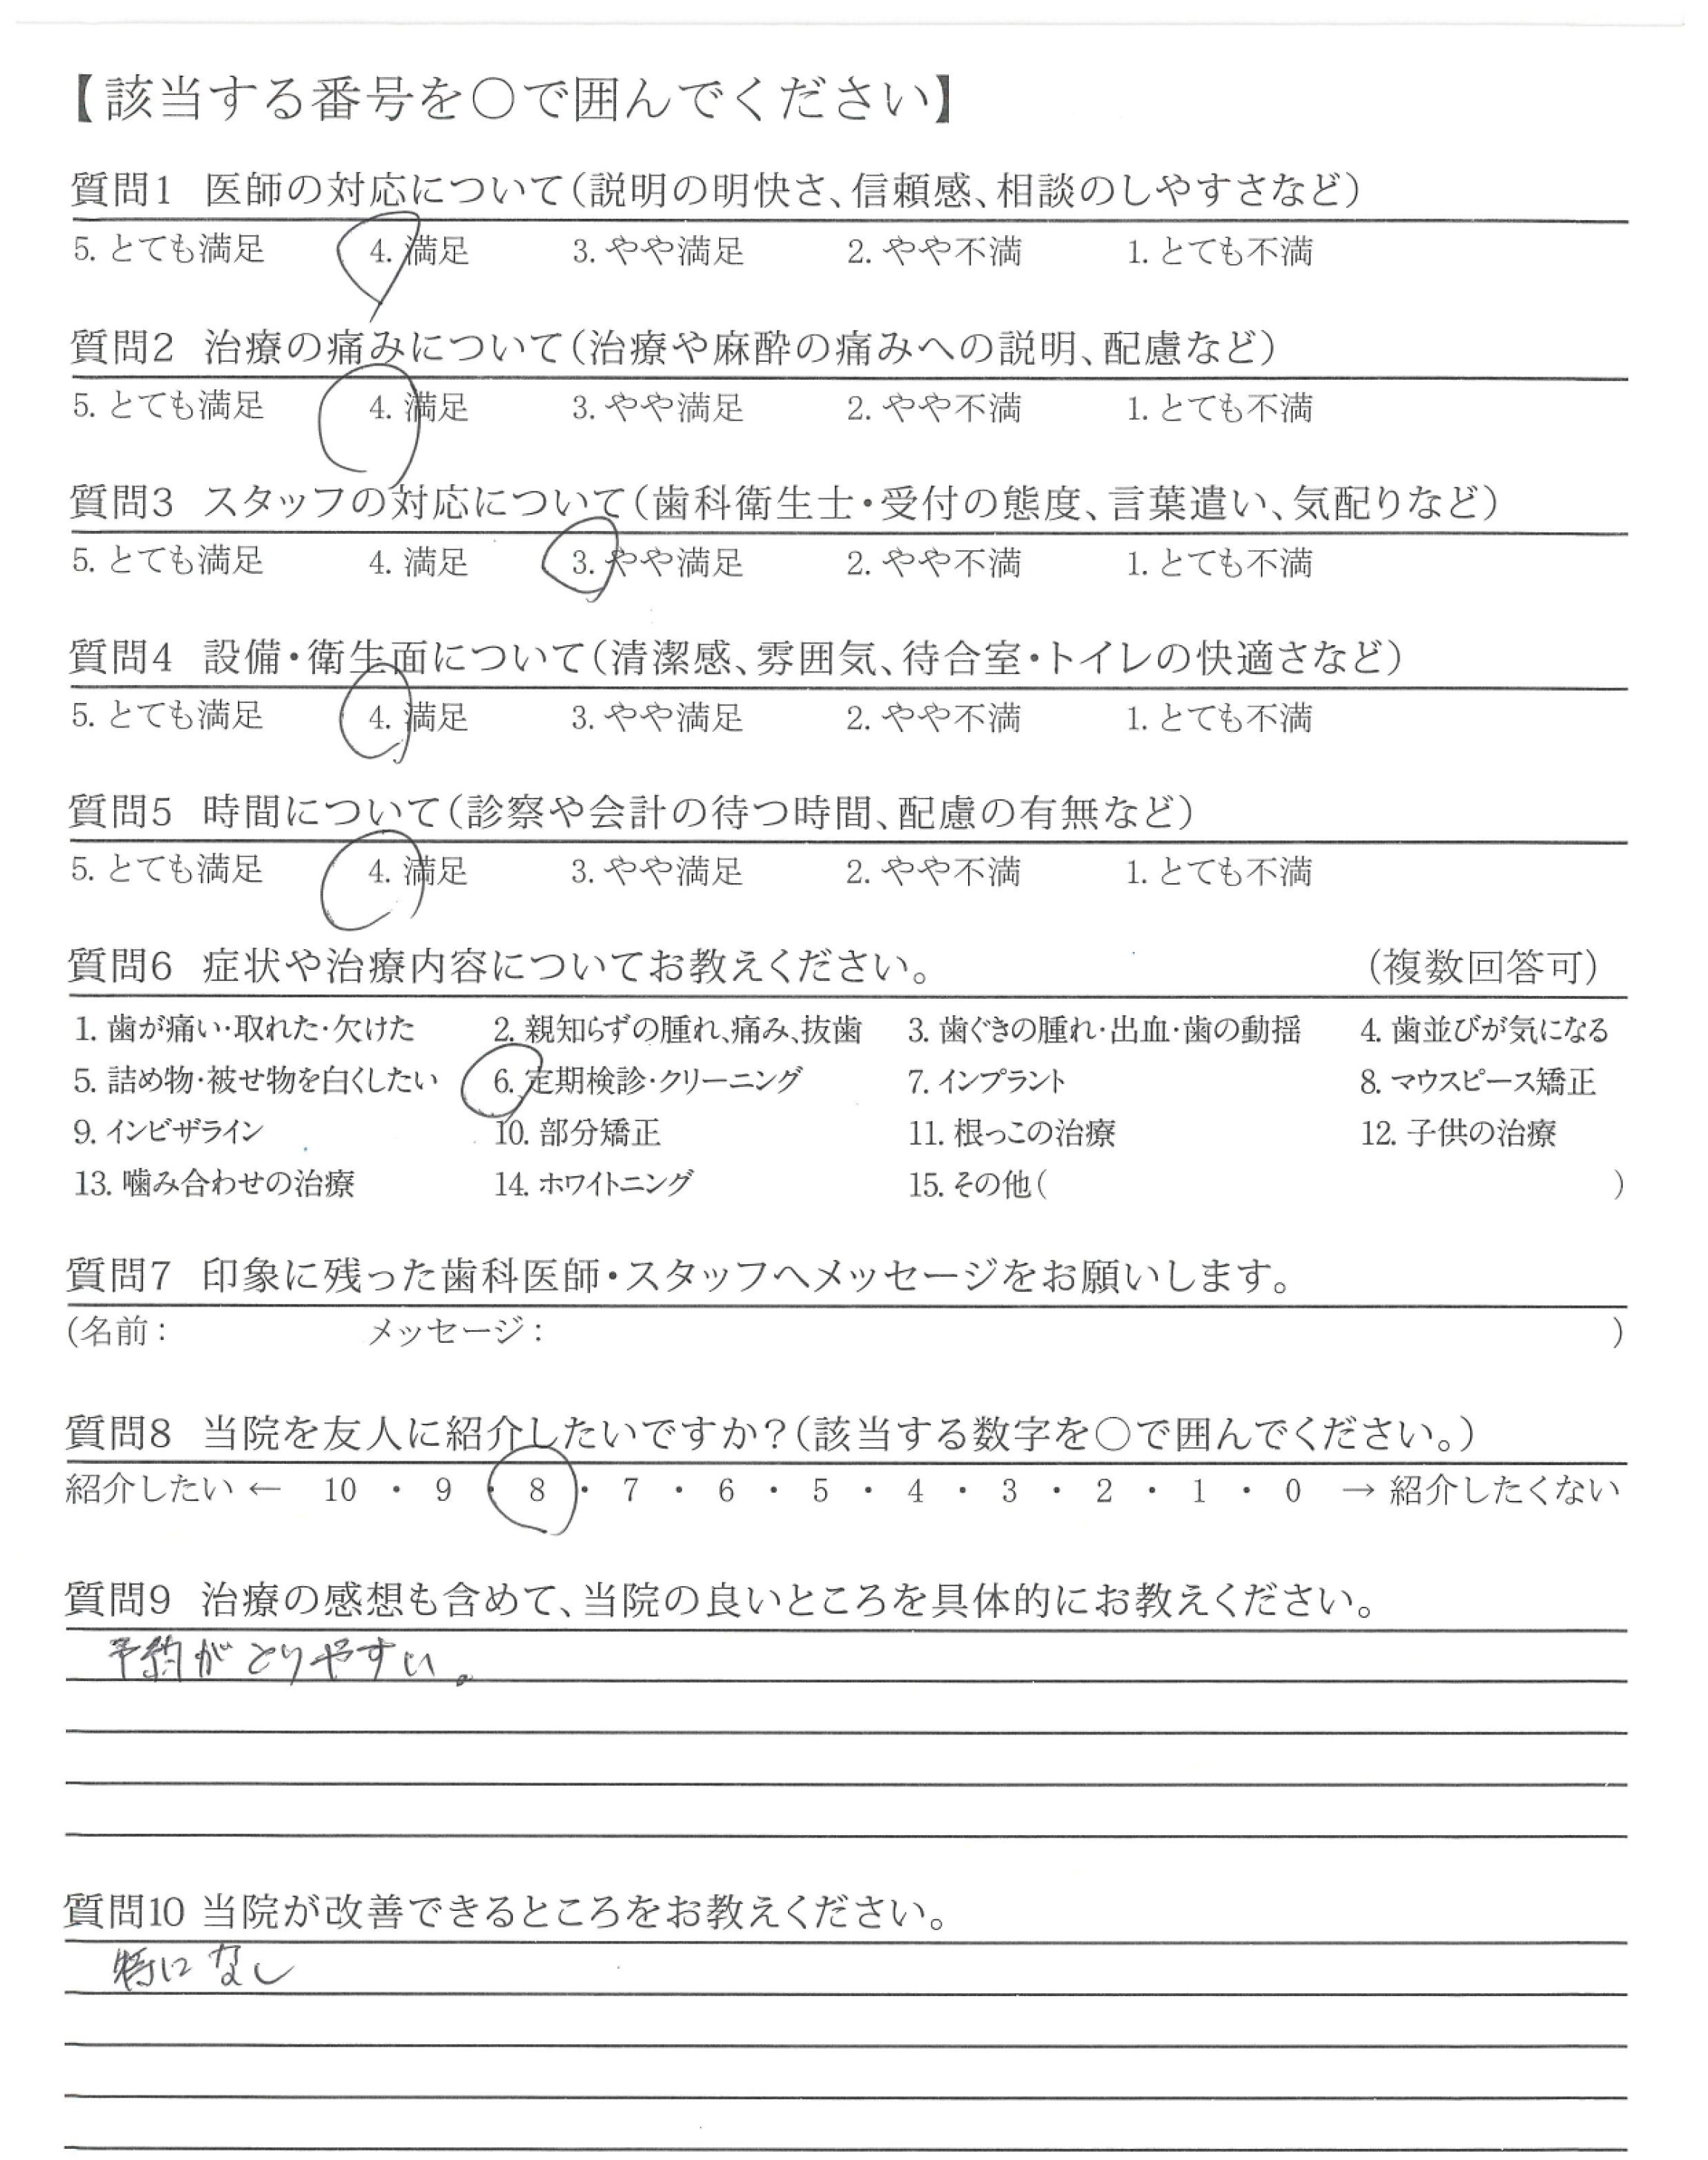 【該当する番号を○で囲んでください】
質問1 医師の対応について(説明の明快さ、信頼感、相談のしやすさなど)
5. とても満足 4. 満足 3. やや満足 2. やや不満 1. とても不満
質問2 治療の痛みについて(治療や麻酔の痛みへの説明、配慮など)
5. とても満足 4. 満足 3. やや満足 2. やや不満 1. とても不満
質問3 スタッフの対応について(歯科衛生士・受付の態度、言葉遣い、気配りなど)
5. とても満足 4. 満足 3. やや満足 2. やや不満 1. とても不満
質問4 設備・衛生面について(清潔感、雰囲気、待合室・トイレの快適さなど)
5. とても満足 4. 満足 3. やや満足 2. やや不満 1. とても不満
質問5 時間について(診察や会計の待つ時間、配慮の有無など)
5. とても満足 4. 満足 3. やや満足 2. やや不満 1. とても不満
質問6 症状や治療内容についてお教えください。 (複数回答可)
1. 歯が痛い・取れた・欠けた 2. 親知らずの腫れ、痛み、抜歯 3. 歯ぐきの腫れ・出血・歯の動揺 4. 歯並びが気になる
5. 詰め物・被せ物を白くしたい 6. 定期検診・クリーニング 7. インプラント 8. マウスピース矯正
9. インビザライン 10. 部分矯正 11. 根っこの治療 12. 子供の治療
13. 噛み合わせの治療 14. ホワイトニング 15. その他( )
質問7 印象に残った歯科医師・スタッフへメッセージをお願いします。
(名前: メッセージ: )
質問8 当院を友人に紹介したいですか?(該当する数字を○で囲んでください。)
紹介したい ← 10 ・ 9 ・ 8 ・ 7 ・ 6 ・ 5 ・ 4 ・ 3 ・ 2 ・ 1 ・ 0 → 紹介したくない
質問9 治療の感想も含めて、当院の良いところを具体的にお教えください。
予約がとりやすい。
質問10 当院が改善できるところをお教えください。
特になし